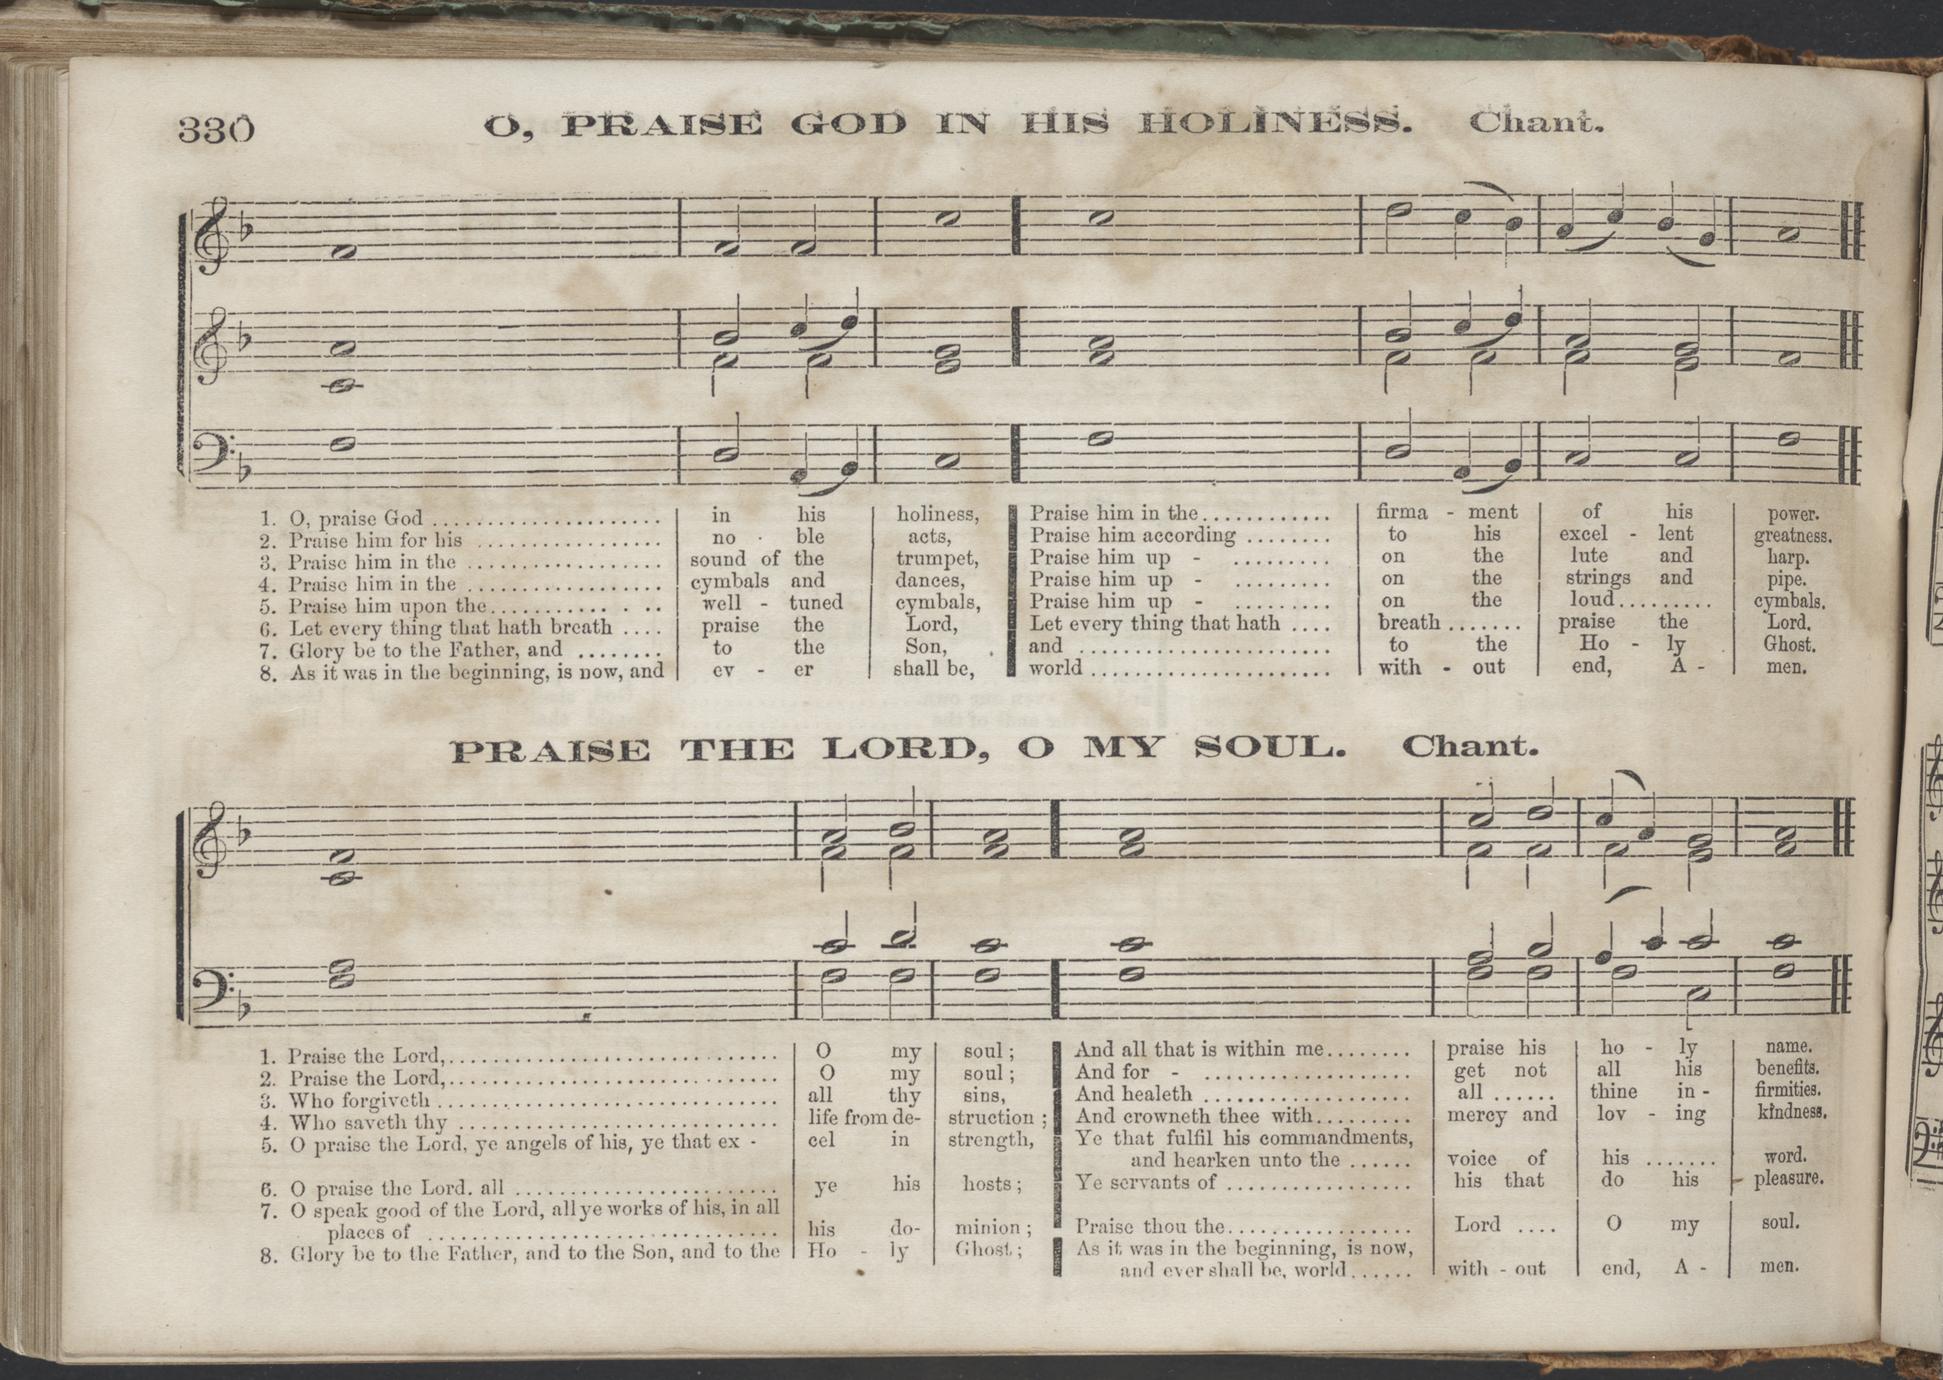 330 O, PRAISE GOD IN HIS HOLINESS. Chant.
1. O, praise God ..................... in his holiness, Praise him in the............ firma - ment of his power.
2. Praise him for his ................. no - ble acts, Praise him according ........ to his excel - lent greatness.
3. Praise him in the .................. sound of the trumpet, Praise him up - ......... on the lute and harp.
4. Praise him in the .................. cymbals and dances, Praise him up - ......... on the strings and pipe.
5. Praise him upon the............ . .. well - tuned cymbals, Praise him up - ......... on the loud......... cymbals.
6. Let every thing that hath breath .... praise the Lord, Let every thing that hath .... breath ....... praise the Lord.
7. Glory be to the Father, and ........ to the Son, and ........................ to the Ho - ly Ghost.
8. As it was in the beginning, is now, and ev - er shall be, world ....................... with - out end, A - men.
PRAISE THE LORD, O MY SOUL. Chant.
1. Praise the Lord,.............................. O my soul; And all that is within me........ praise his ho - ly name.
2. Praise the Lord,.............................. O my soul; And for - .................. get not all his benefits.
3. Who forgiveth ............................... all thy sins, And healeth .................... all ...... thine in - firmities.
4. Who saveth thy ............................. life from de- struction; And crowneth thee with......... mercy and lov - ing kindness.
5. O praise the Lord, ye angels of his, ye that ex - cel in strength, Ye that fulfil his commandments,
and hearken unto the ...... voice of his ....... word.
6. O praise the Lord. all ........................ ye his hosts; Ye servants of ................. his that do his pleasure.
7. O speak good of the Lord, all ye works of his, in all
places of ................................ his do- minion; Praise thou the.................. Lord .... O my soul.
8. Glory be to the Father, and to the Son, and to the Ho - ly Ghost; As it was in the beginning, is now,
and ever shall be, world...... with - out end, A - men.